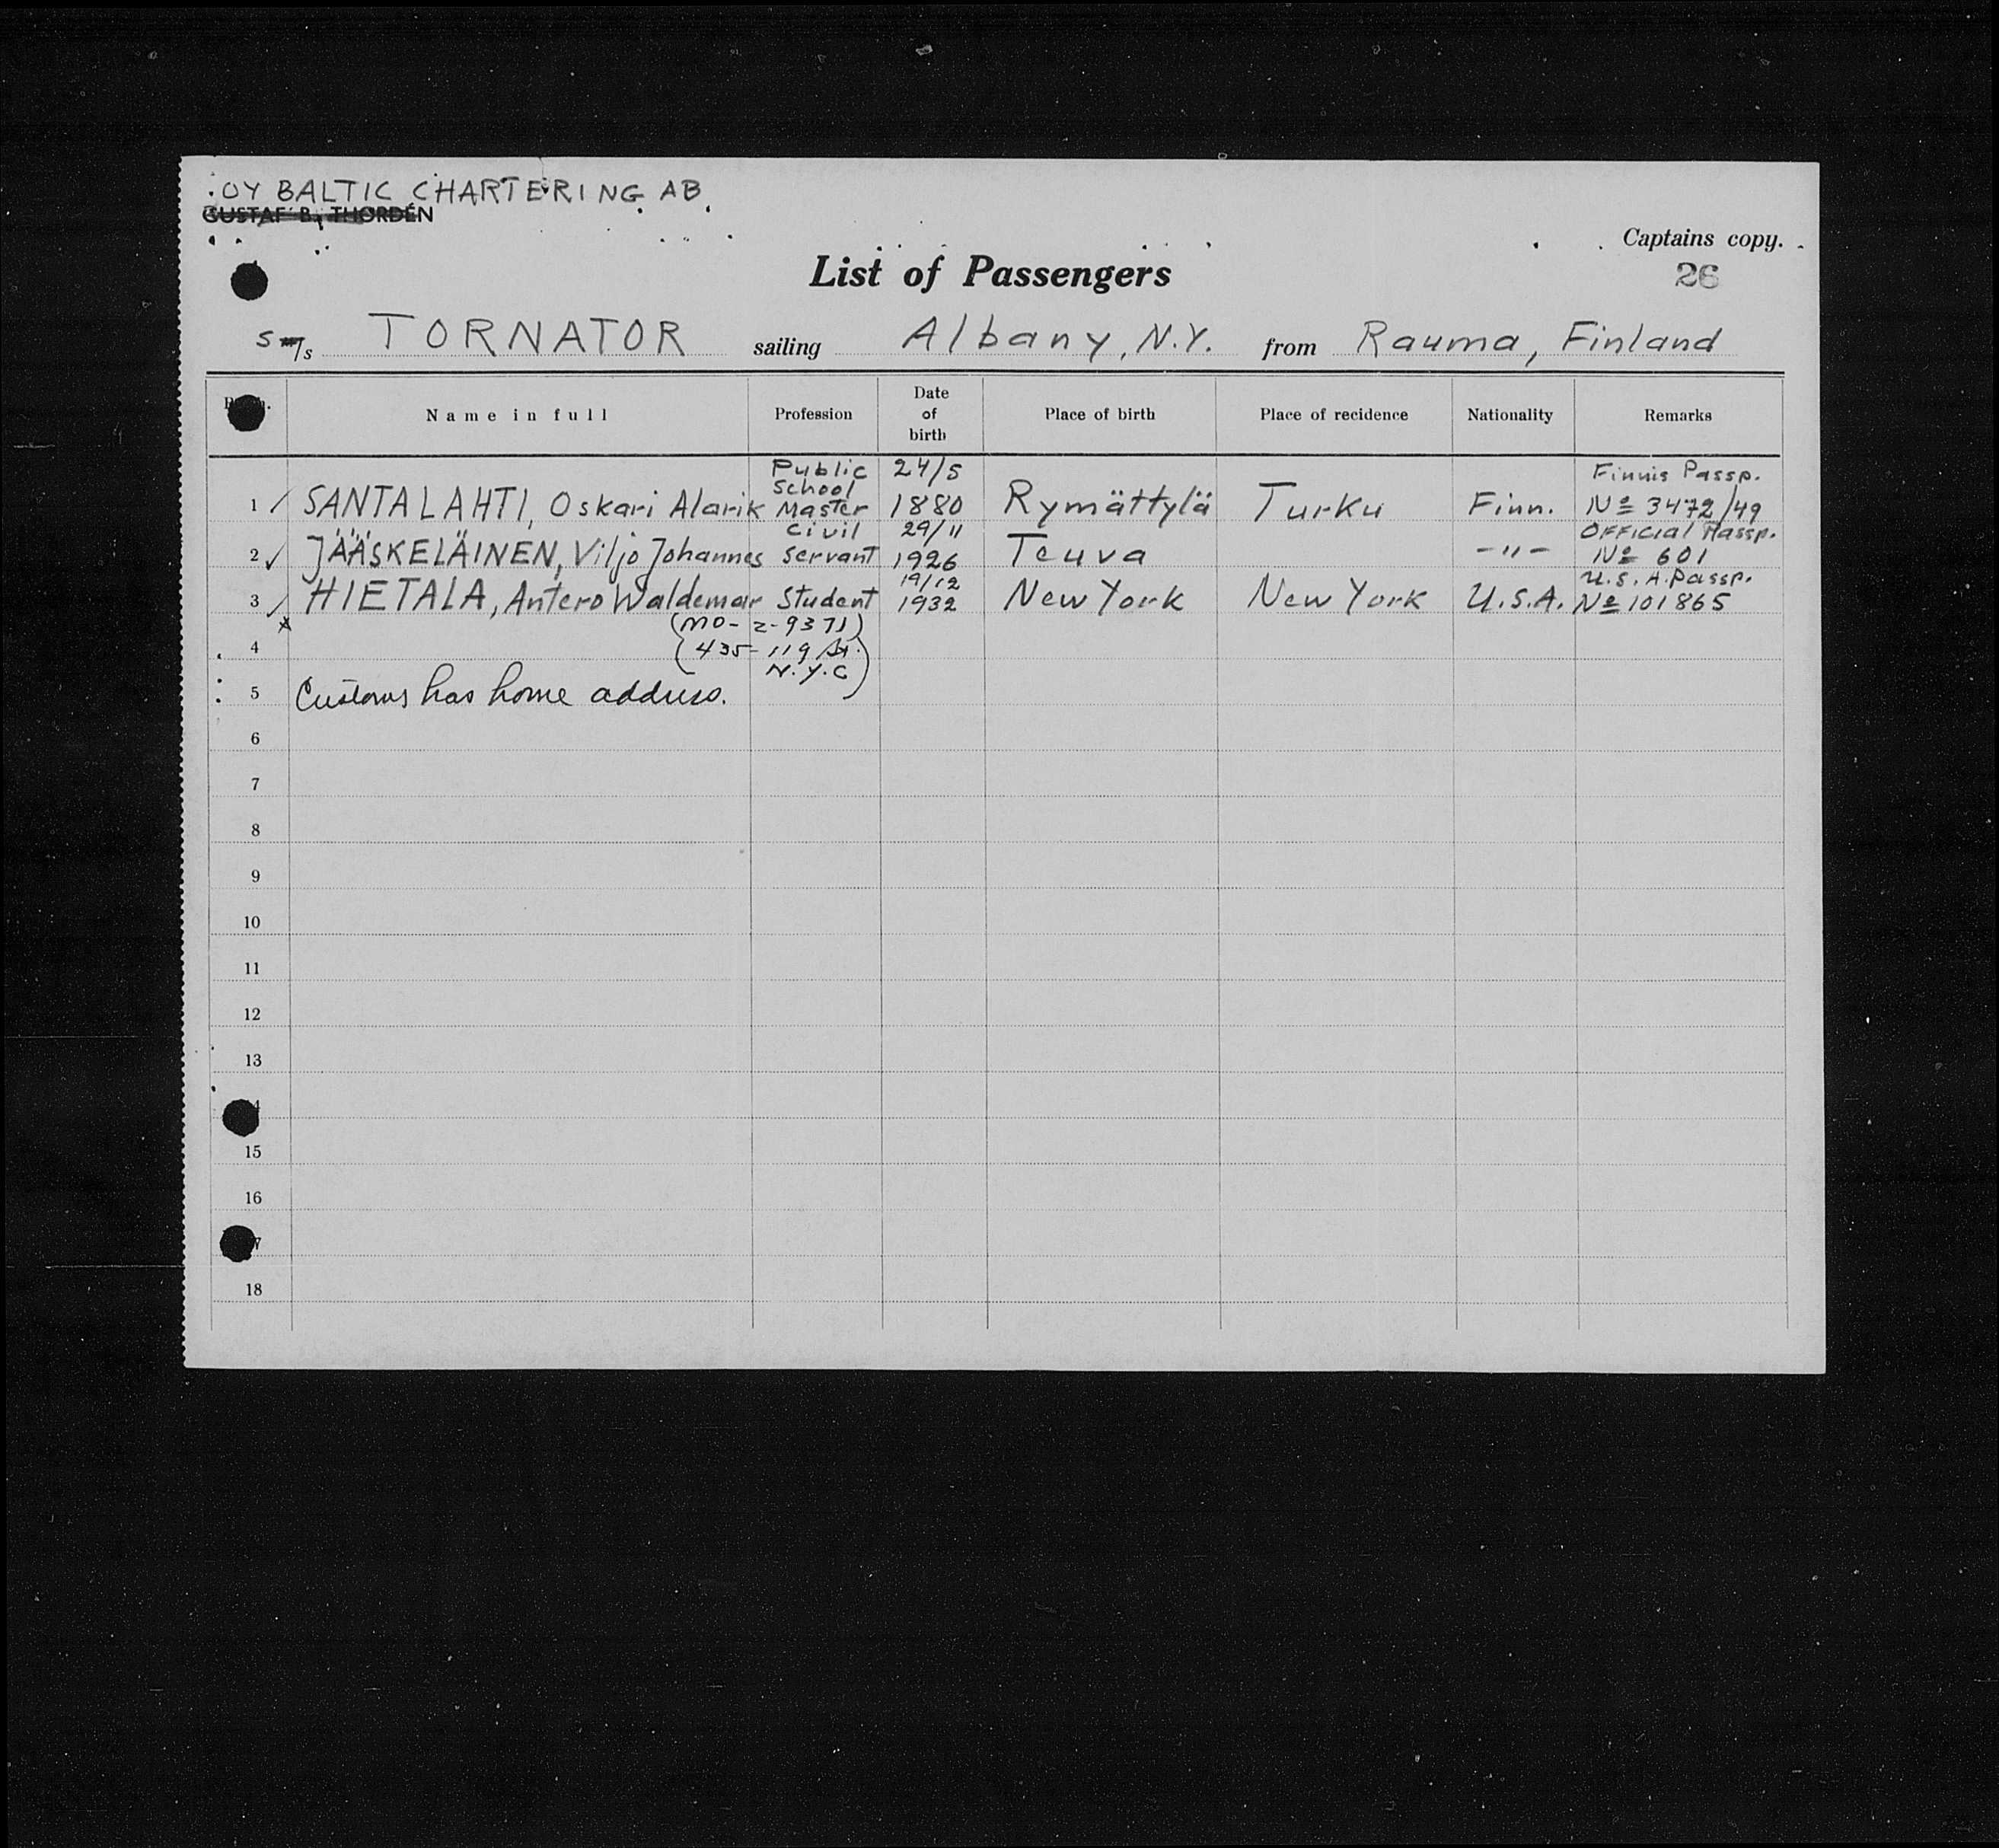 OY BALTIC CHARTERING AB
GUSTAF B. THORDÉN
Captains copy.
List of Passengers
26
S m/s TORNATOR sailing Albany, N.Y. from Rauma, Finland
Name in full Profession Date of birth Place of birth Place of recidence Nationality Remarks
1 SANTALAHTI, Oskari Alarik Public School Master 24/5 1880 Rymättylä Turku Finn. Finnis Passp. No 3472/49
2 JÄÄSKELÄINEN, Viljo Johannes Civil Servant 29/11 1926 Teuva -"- OFFICIAL Passp. No 601
3 HIETALA, Antero Waldemar Student 19/12 1932 New York New York U.S.A. U.S.A. Passp. No 101865
(MO-2-9371)
4 435-119 St.
N.Y.C
5 Customs has home address.
6
7
8
9
10
11
12
13
15
16
18